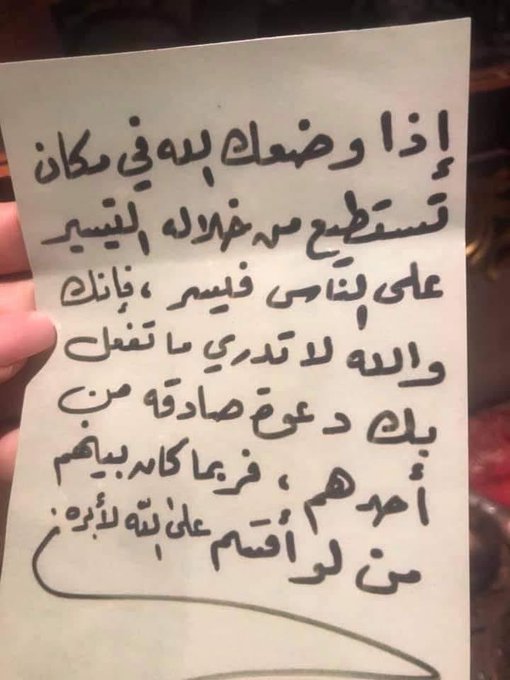 إذا وضعك الله في مكان
تستطيع من خلاله التيسير
على الناس فيسر ، فإنك
والله لا تدري ما تفعل
بك دعوة صادقه من
أحدهم ، فربما كان بينهم
من لو أقسم على الله لأبره .